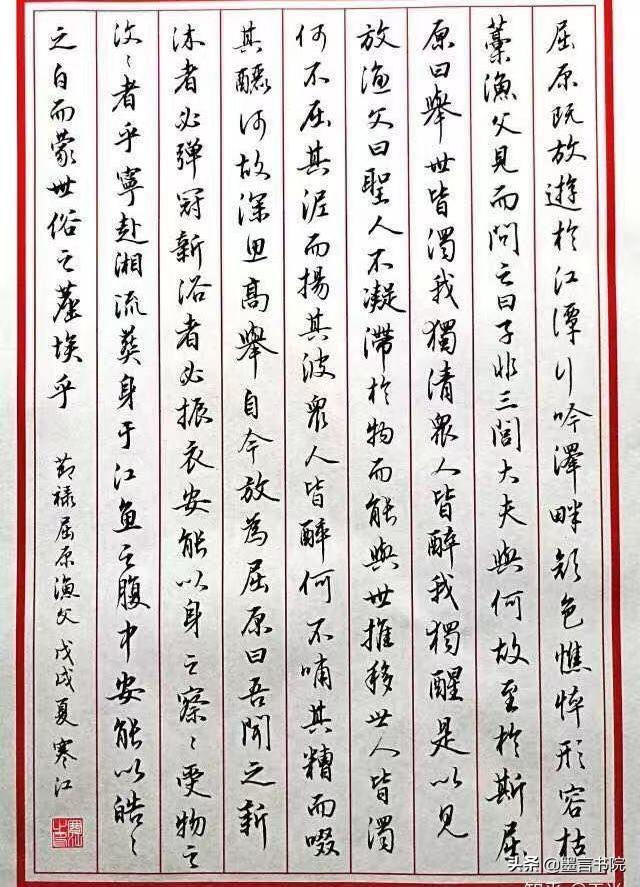 屈原既放遊於江潭行吟澤畔顏色憔悴形容枯
藁漁父見而問之曰子非三閭大夫與何故至於斯屈
原曰舉世皆濁我獨清眾人皆醉我獨醒是以見
放漁父曰聖人不凝滯於物而能與世推移世人皆濁
何不屈其泥而揚其波眾人皆醉何不哺其糟而啜
其釃何故深思高舉自令放為屈原曰吾聞之新
沐者必彈冠新浴者必振衣安能以身之察々受物之
汶々者乎寧赴湘流葬身于江魚之腹中安能以皓々
之白而蒙世俗之塵埃乎
節祿屈原漁父戊戌夏寒江
头条@墨言书院